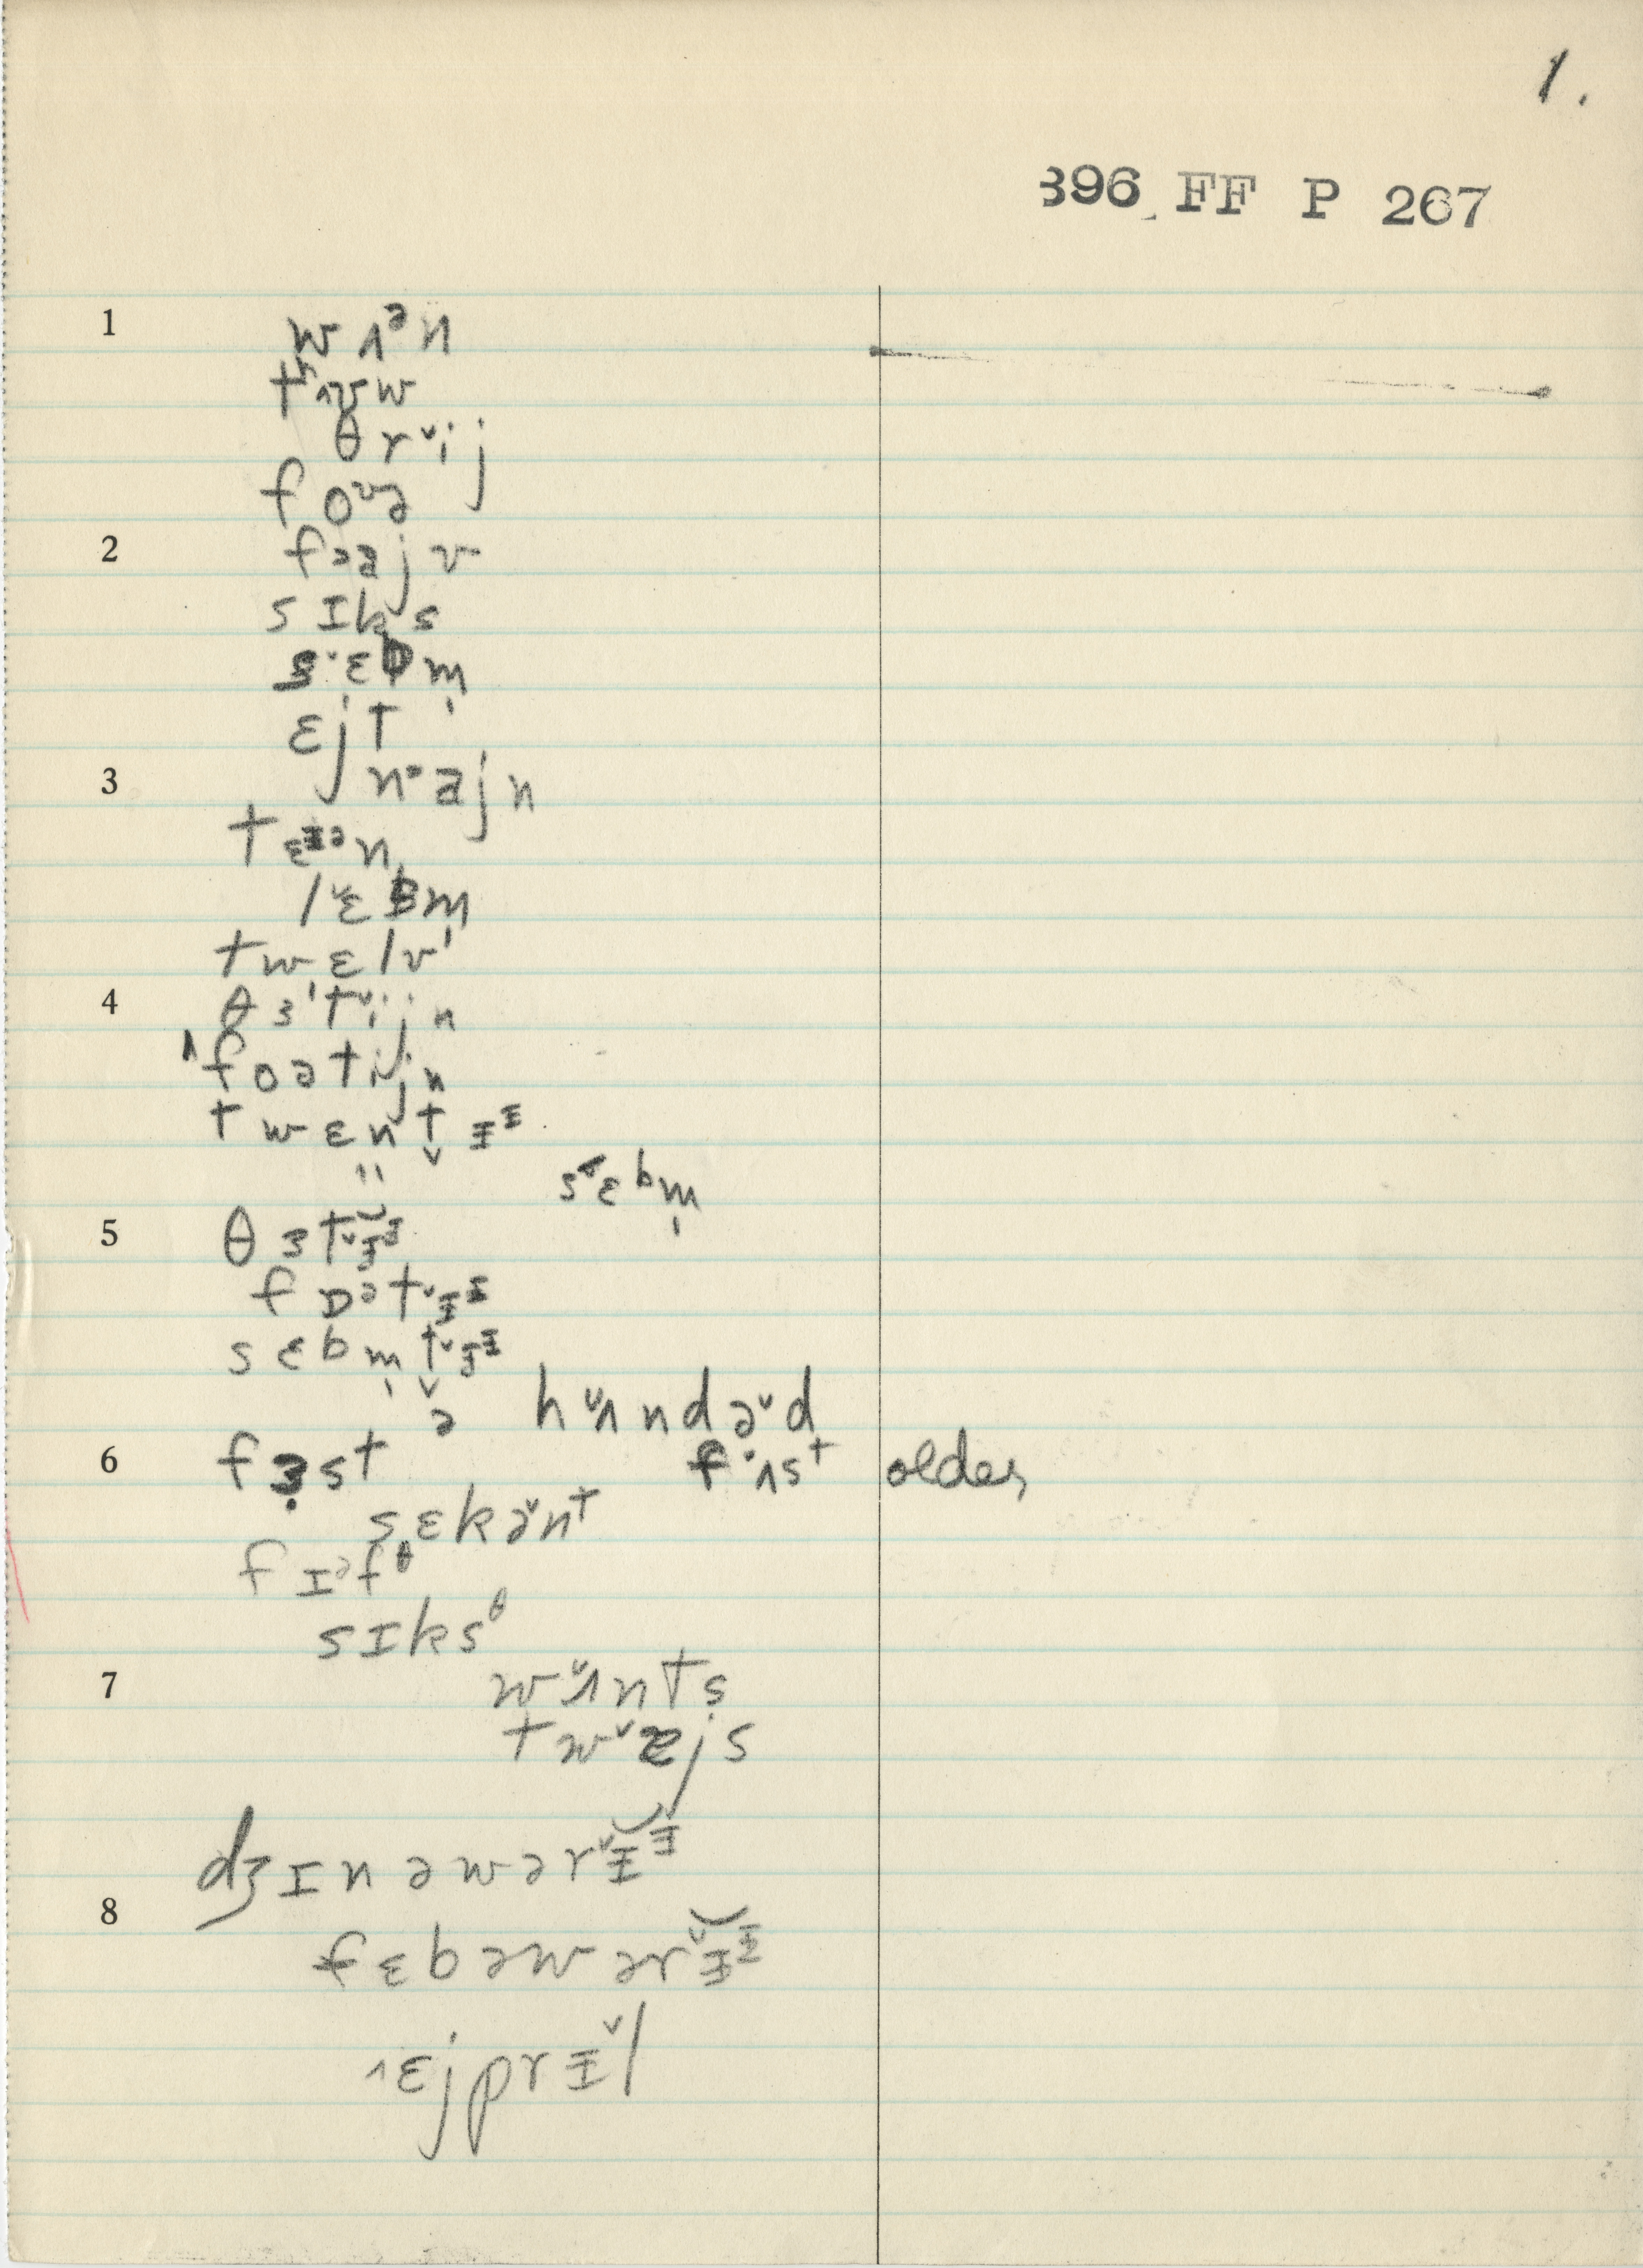 1.
396 FF P 267
1 wʌᵊn
tʰ˄ʊw
θr˅ij
foᶷə
2 fɐaj v
sɪks
s˅ɛbm̩
ɛjt
3 n˃ajn
tɛᶦᵊn
l˅ɛbm̩
twɛlv
4 θɜˈt˅ijn
ˈfoətijn
twɛnt̬ɪᶦ
" sɛbm̩
5 θɜt˅ɪᶦ
fɒᵊt˅ɪᶦ
sɛbm̩t̬˅ɪᶦ
ə h˅ʌndə˅d
6 fɜst f˙ʌsᵗ older
sɛkə˅nᵗ
fɪᵊfᶿ
sɪksᶿ
7 w˅ʌnts
tw˅æjs
dʒɪnəwər˅ɪᶦ
8 fɛbəwər˅ɪᶦ
˄ɛjprɪ˅l